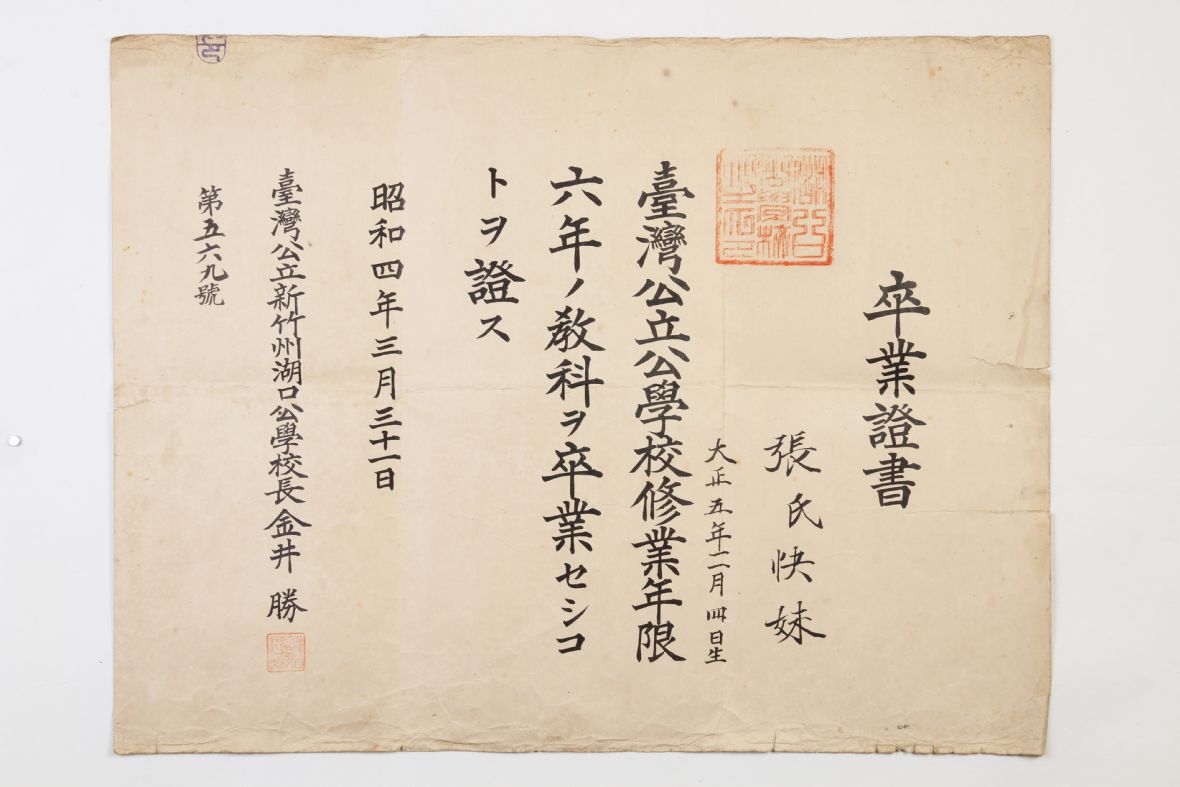 卒業證書
張氏快妹
大正五年二月四日生
臺灣公立公學校修業年限
六年ノ教科ヲ卒業セシコ
トヲ證ス
昭和四年三月三十一日
臺灣公立新竹州湖口公學校長金井 勝
第五六九號